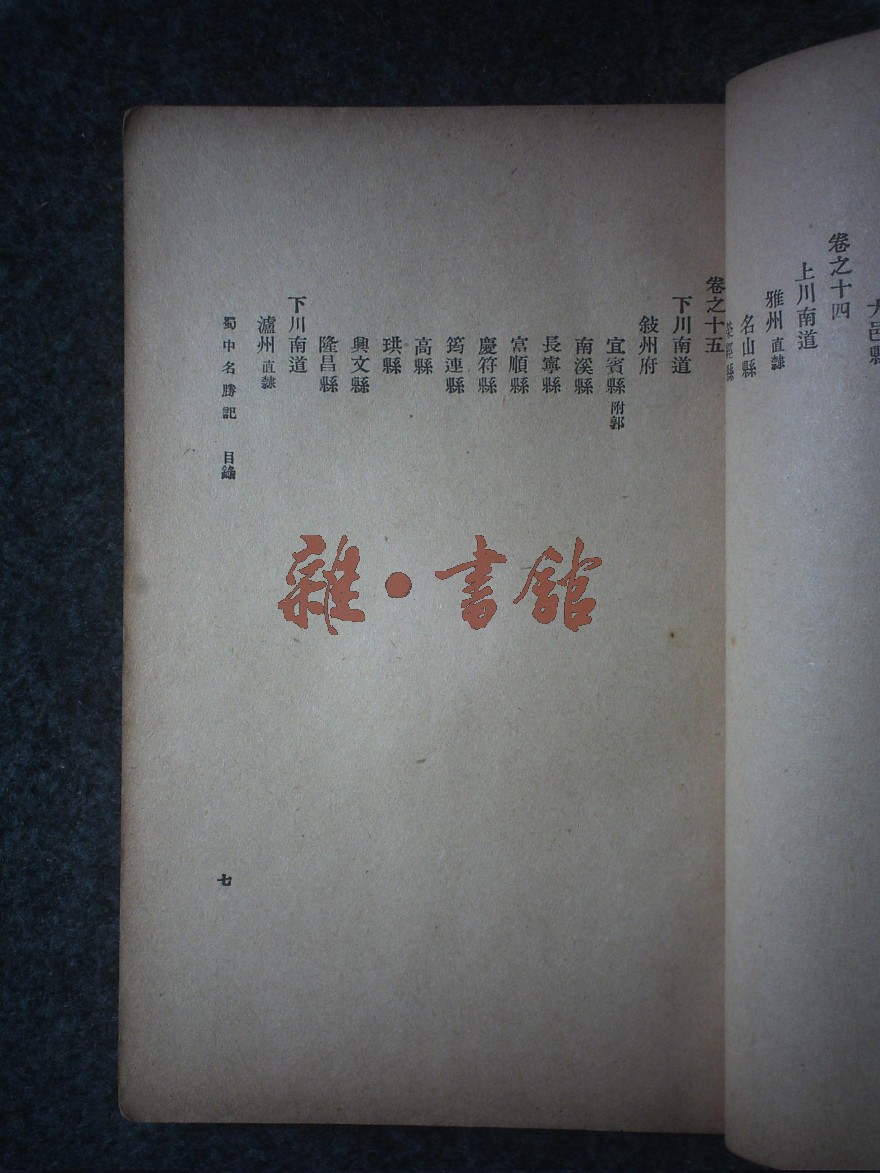 大邑縣
卷之十四
上川南道
雅州 直隸
名山縣
縣
卷之十五
下川南道
敍州府
宜賓縣 附郭
南溪縣
長寧縣
富順縣
慶符縣
筠連縣
高縣
珙縣
興文縣
隆昌縣
下川南道
瀘州 直隸
蜀中名勝記 目錄
七
雜·書館